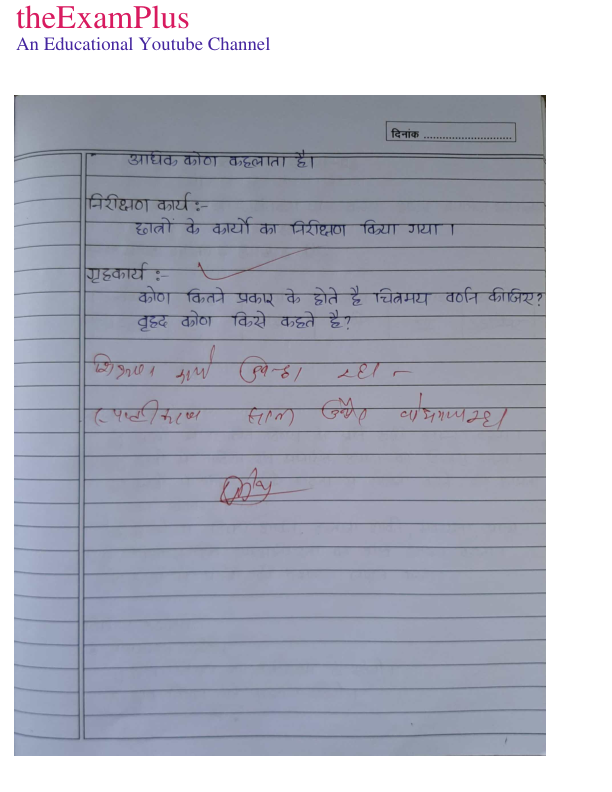 theExamPlus
An Educational Youtube Channel
दिनांक ............................
अधिक कोण कहलाता है।
निरीक्षण कार्य :-
छात्रों के कार्यो का निरीक्षण किया गया ।
गृहकार्य :-
कोण कितने प्रकार के होते है चित्रमय वर्णन कीजिए?
वृहद कोण किसे कहते है?
शिक्षण कार्य अच्छा रहा -
स्पष्टीकरण